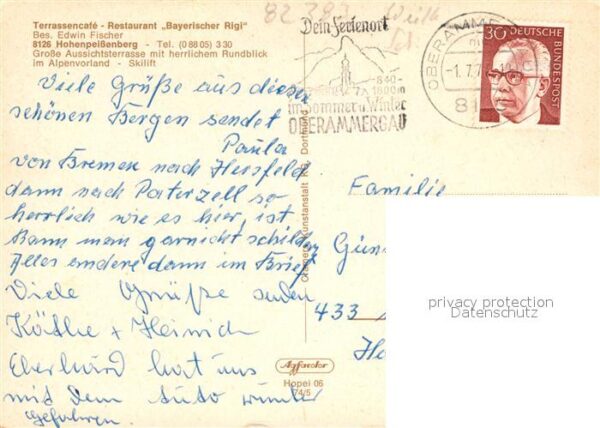 Terrassencafé - Restaurant „Bayerischer Rigi"
Bes. Edwin Fischer
8126 Hohenpeißenberg - Tel. (0 88 05) 3 30
Große Aussichtsterrasse mit herrlichem Rundblick
im Alpenvorland - Skilift
82 383
Dein Ferienort
840-
1800m
im Sommer u. Winter
OBERAMMERGAU
OBERAMMERGAU
-1.7.7
81
30 DEUTSCHE
BUNDESPOST
Viele Grüße aus diesen
schönen Bergen sendet
Paula
von Bremen nach Hersfeld
dann nach Paterzell so
herrlich wie es hier ist
kann man garnicht schildern
Alles andere dann im Brief
Viele Grüße senden
Käthe + Heinrich
Eberhard hat uns
mit dem Auto wunder
gefahren.
Familie
Gün
433
Agfacolor
Hopei 06
74/5
privacy protection
Datenschutz